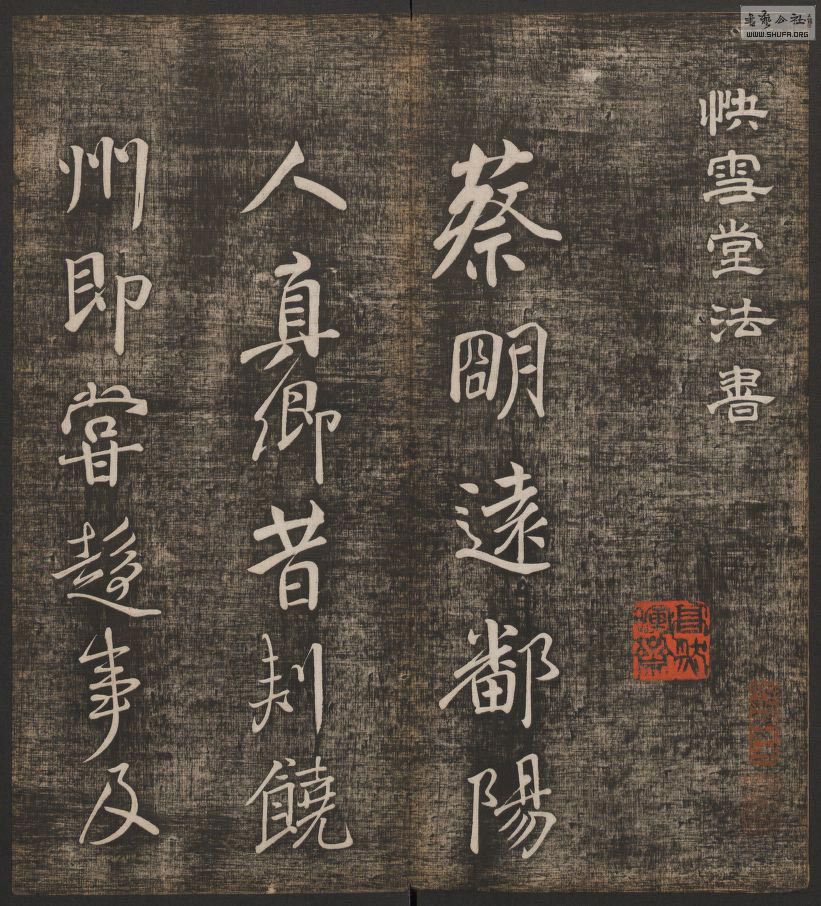 快雪堂法書
蔡明遠鄱陽
人真卿昔刺饒
州即甞趍事及
書藝公社
WWW.SHUFA.ORG